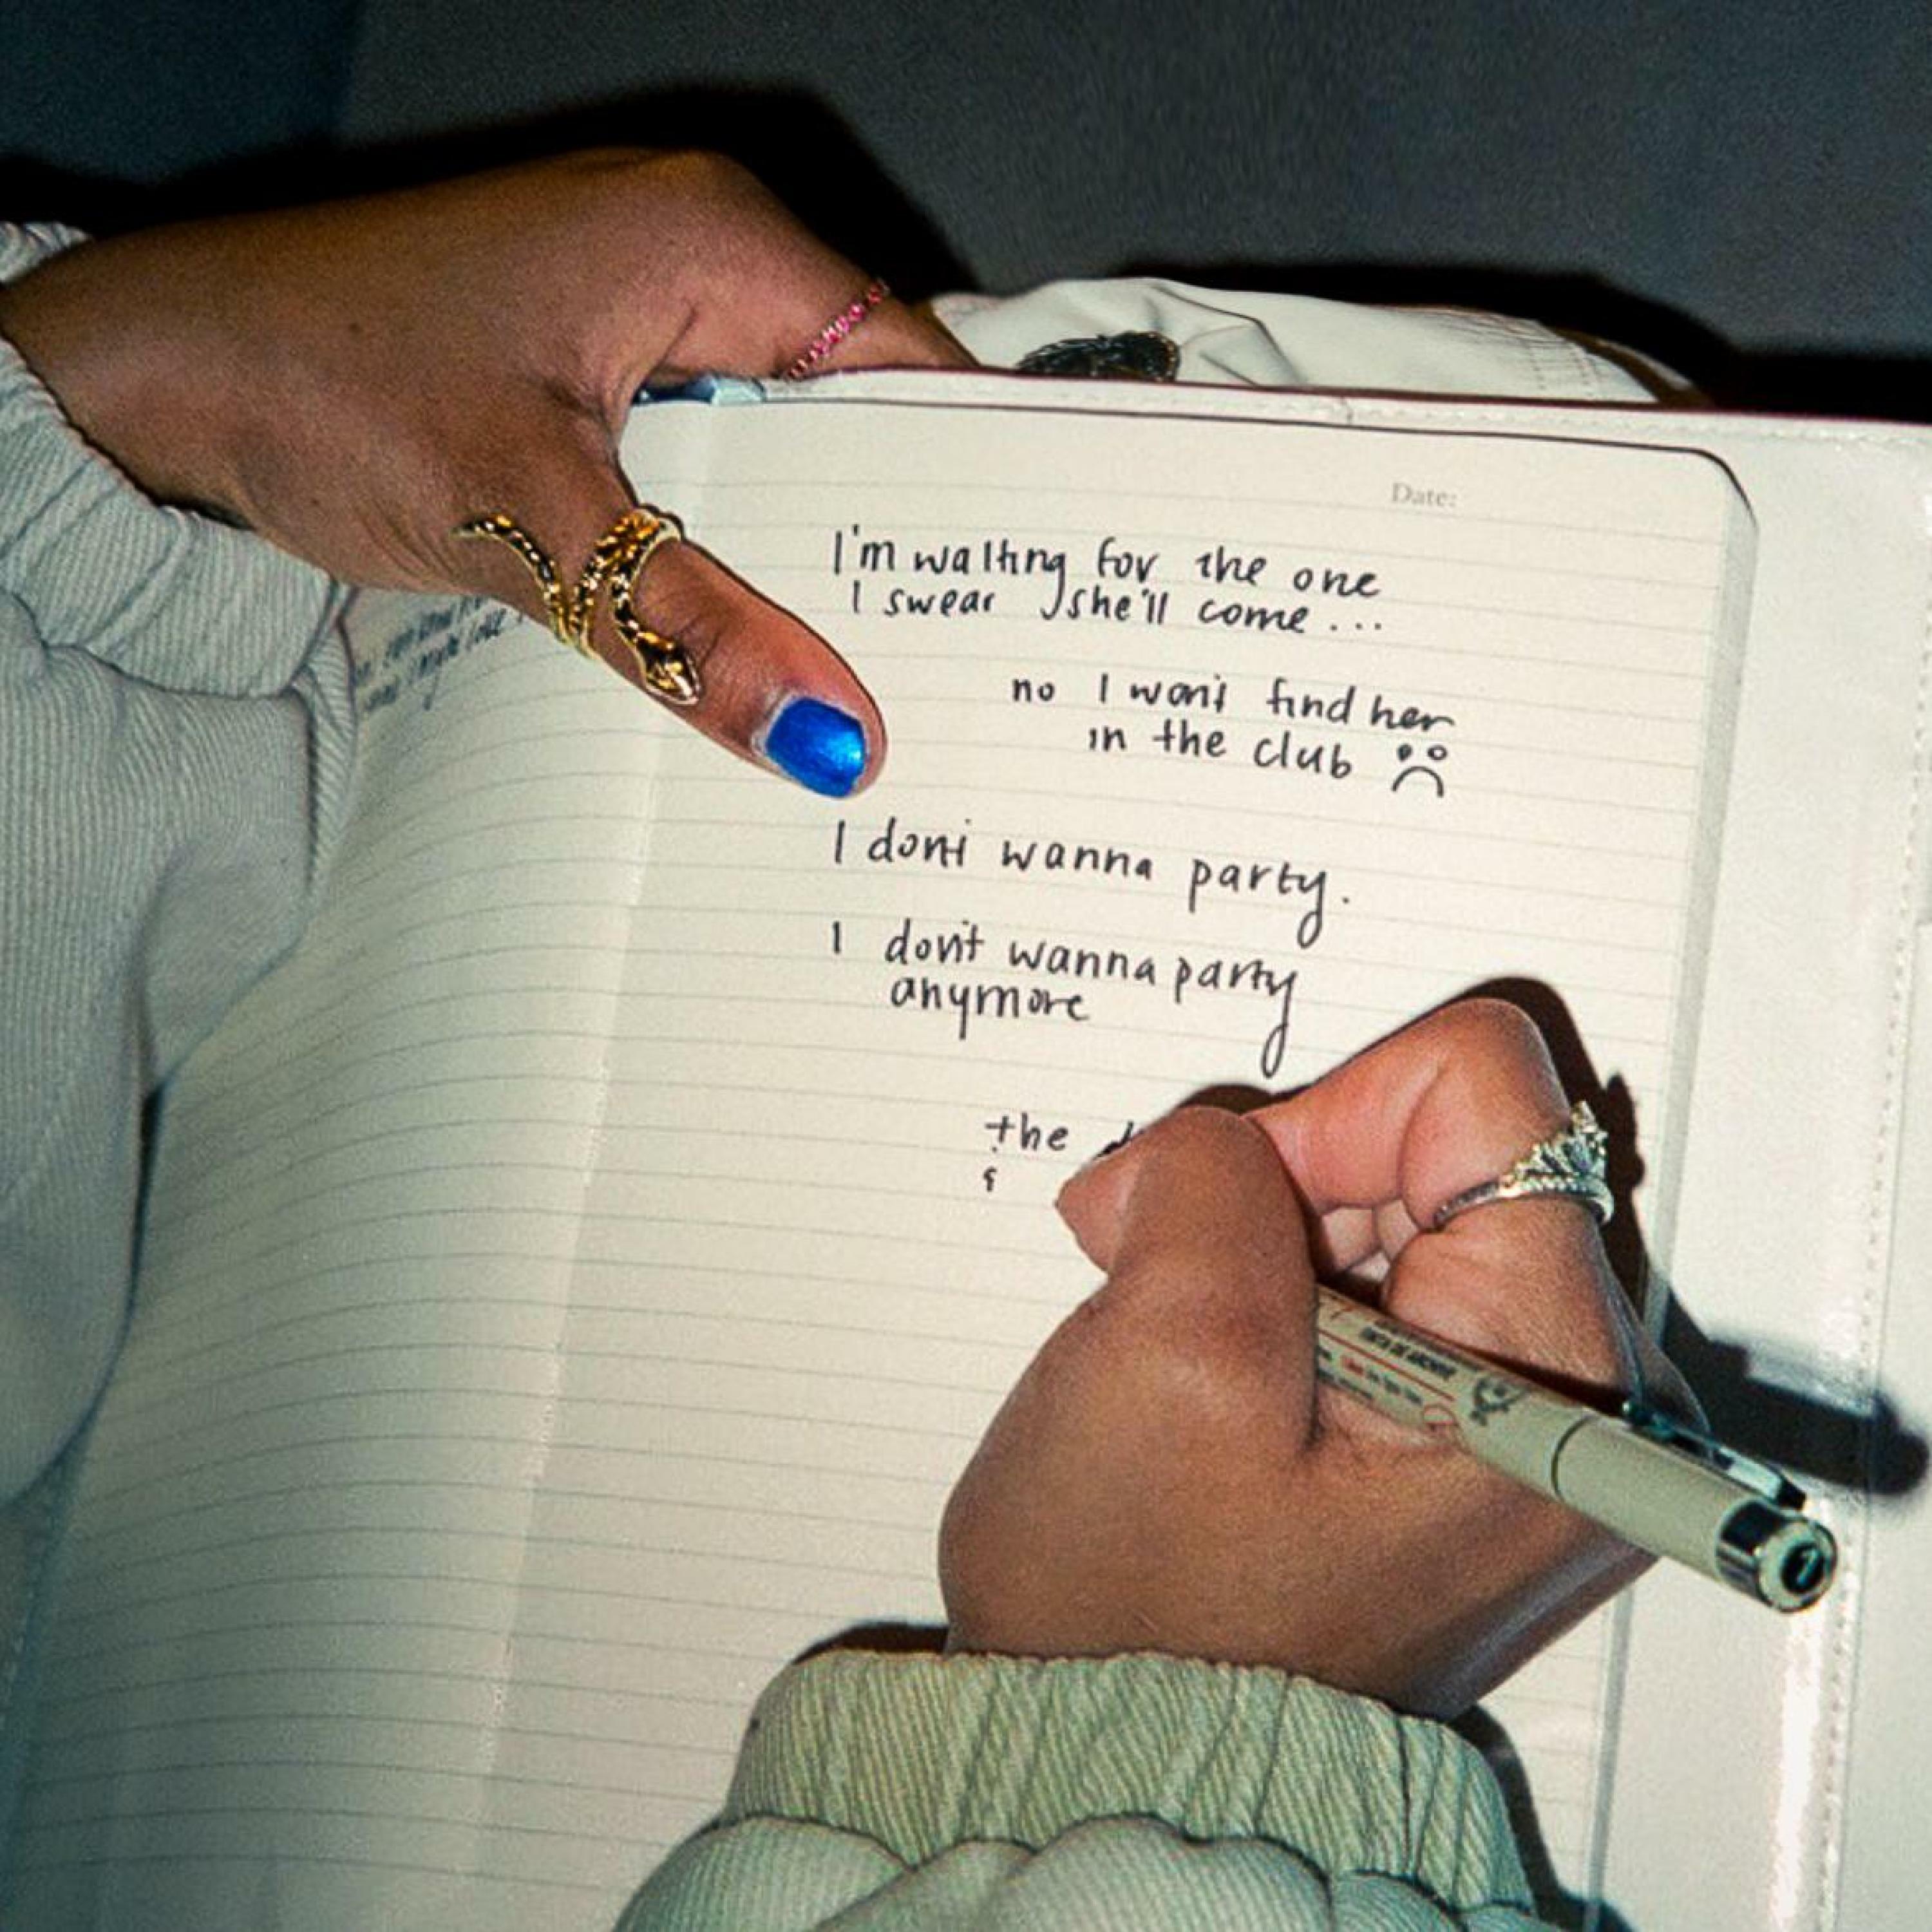 Date:
I'm waiting for the one
I swear she'll come...
no I won't find her
in the club
I don't wanna party.
I don't wanna party
anymore
the